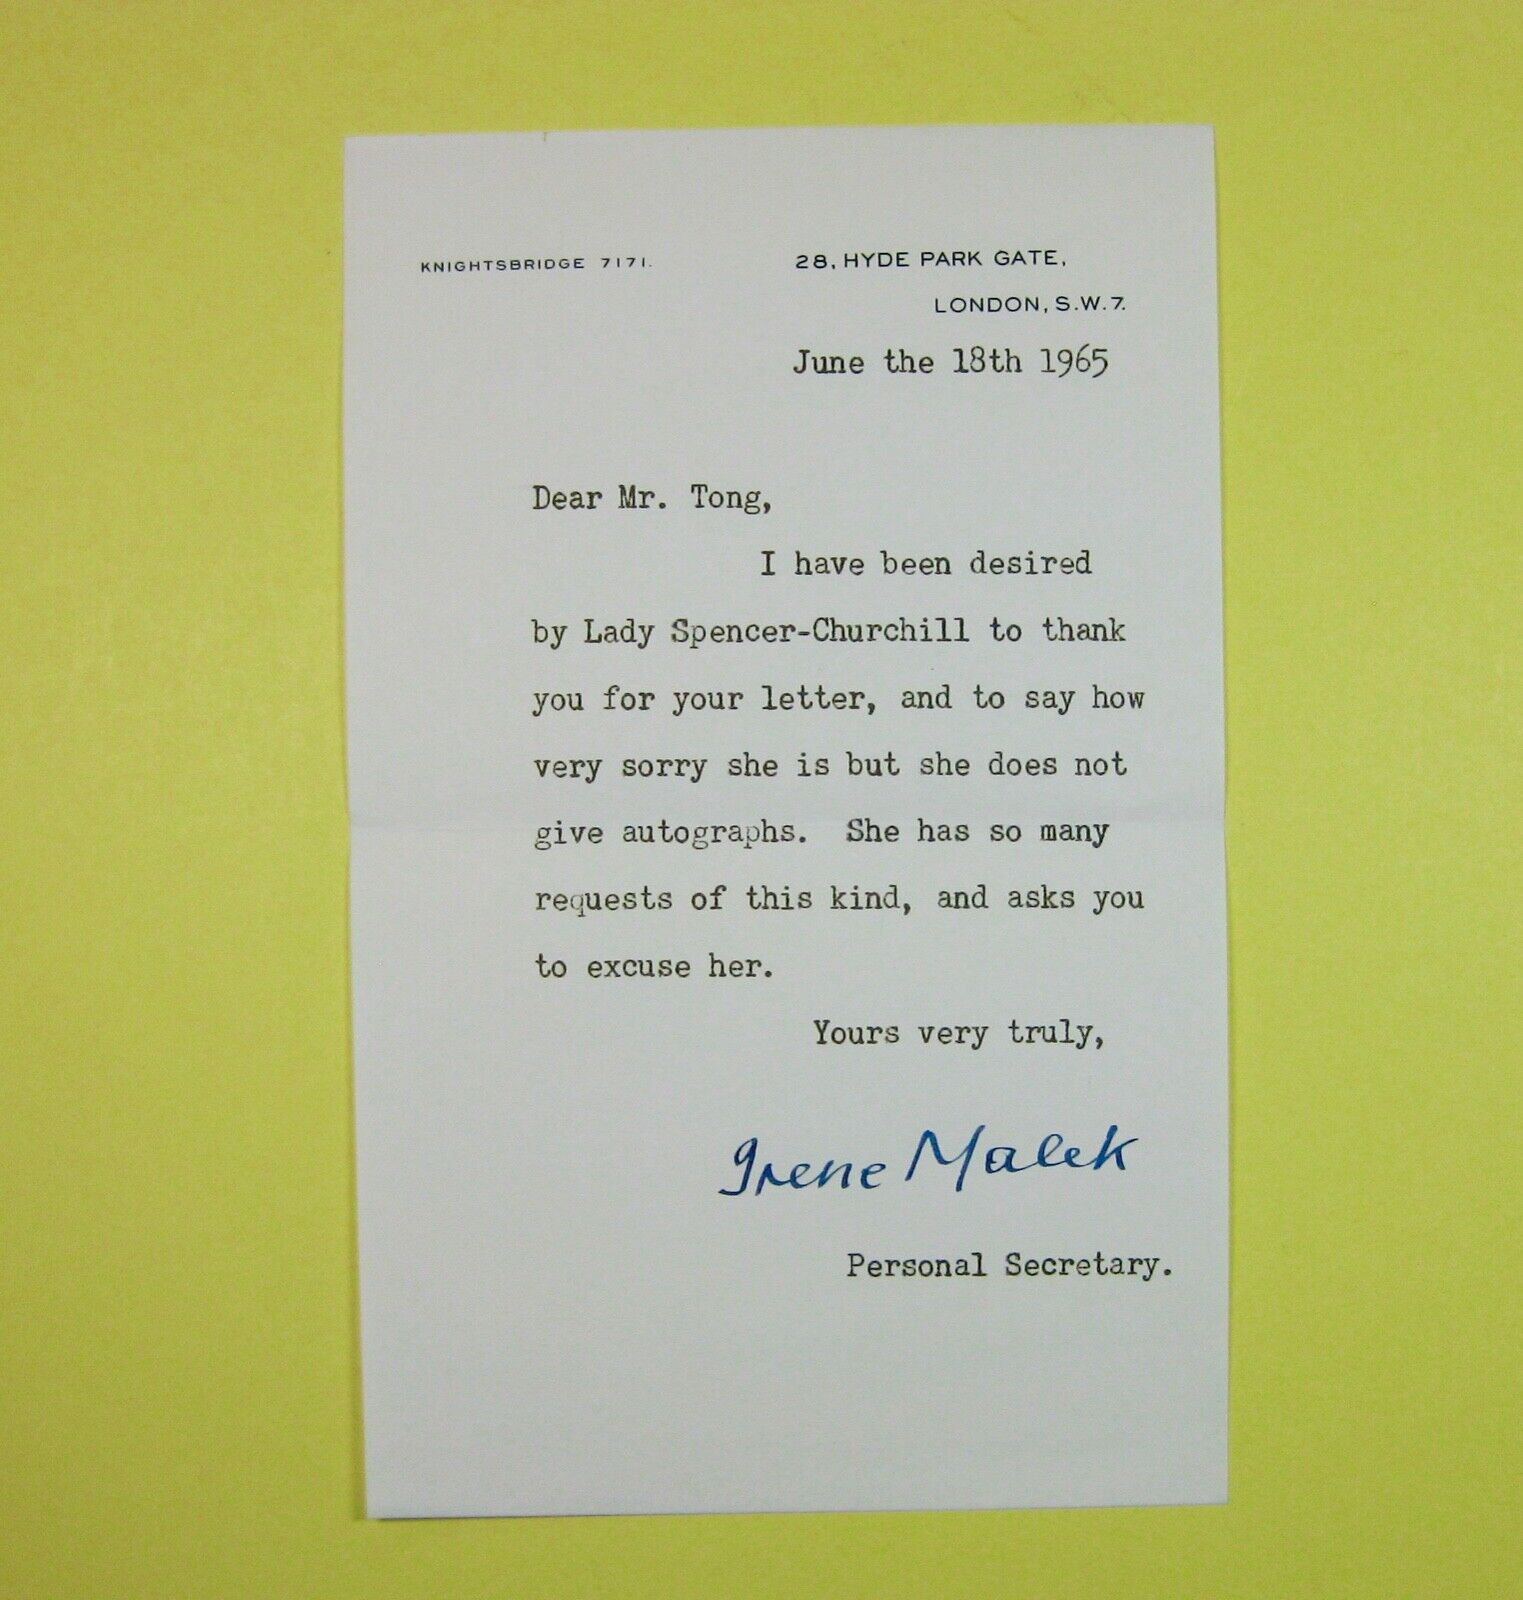 KNIGHTSBRIDGE 7171.
28, HYDE PARK GATE,
LONDON, S.W.7.
June the 18th 1965
Dear Mr. Tong,
I have been desired
by Lady Spencer-Churchill to thank
you for your letter, and to say how
very sorry she is but she does not
give autographs.  She has so many
requests of this kind, and asks you
to excuse her.
Yours very truly,
Irene Malek
Personal Secretary.